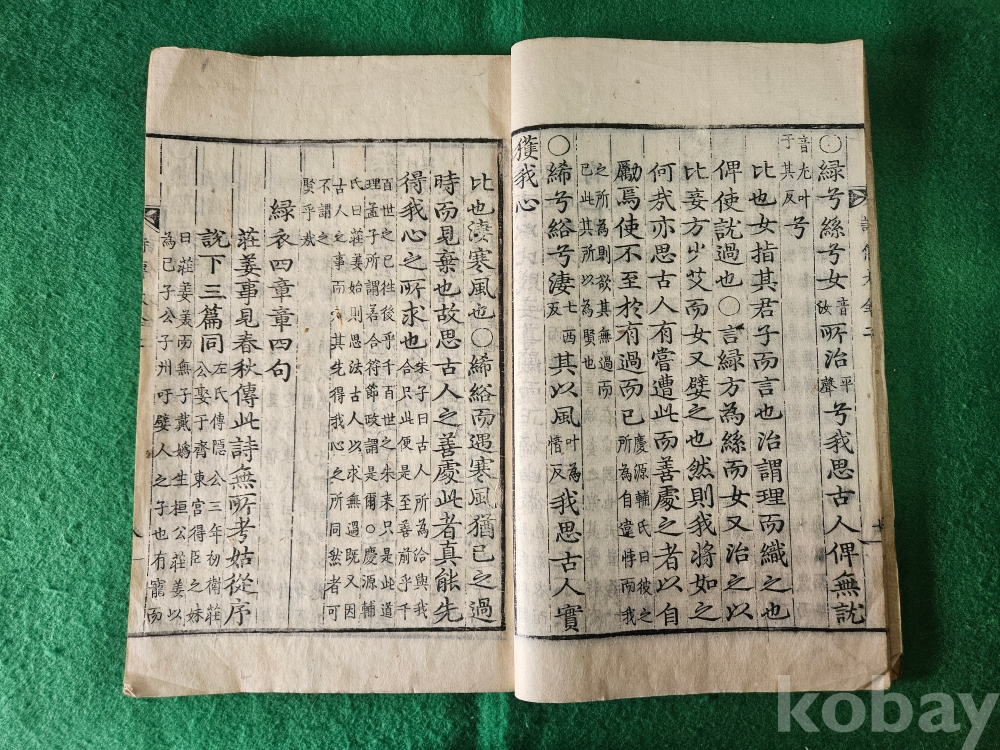 ○綠兮絲兮女音汝所治平聲兮我思古人俾無訧
音尤叶于其反兮
比也女指其君子而言也治謂理而織之也
俾使訧過也○言綠方為絲而女又治之以
比妾方少艾而女又嬖之也然則我將如之
何哉亦思古人有嘗遭此而善處之者以自
勵焉使不至於有過而已慶源輔氏曰彼之所為自違悖而我
之所為則欲其無過而已此其所以為賢也
○絺兮綌兮淒七西反其以風叶孚愔反我思古人實
獲我心
比也淒寒風也○絺綌而遇寒風猶己之過
時而見棄也故思古人之善處此者真能先
得我心之所求也朱子曰古人所為恰與我合只此便是至善前乎千
百世之已往後乎千百世之未來只是此道理孟子所謂若合符節政謂是爾○慶源輔
氏曰莊姜始則思法古人以求無過既又因古人之事而其先得我心之所同然者可
不謂之賢乎哉
綠衣四章章四句
莊姜事見春秋傳此詩無所考姑從序
說下三篇同左氏傳隱公三年初衛莊公娶于齊東宮得臣之妹
曰莊姜美而無子戴媯生桓公莊姜以為己子公子州吁嬖人之子也有寵而
kobay